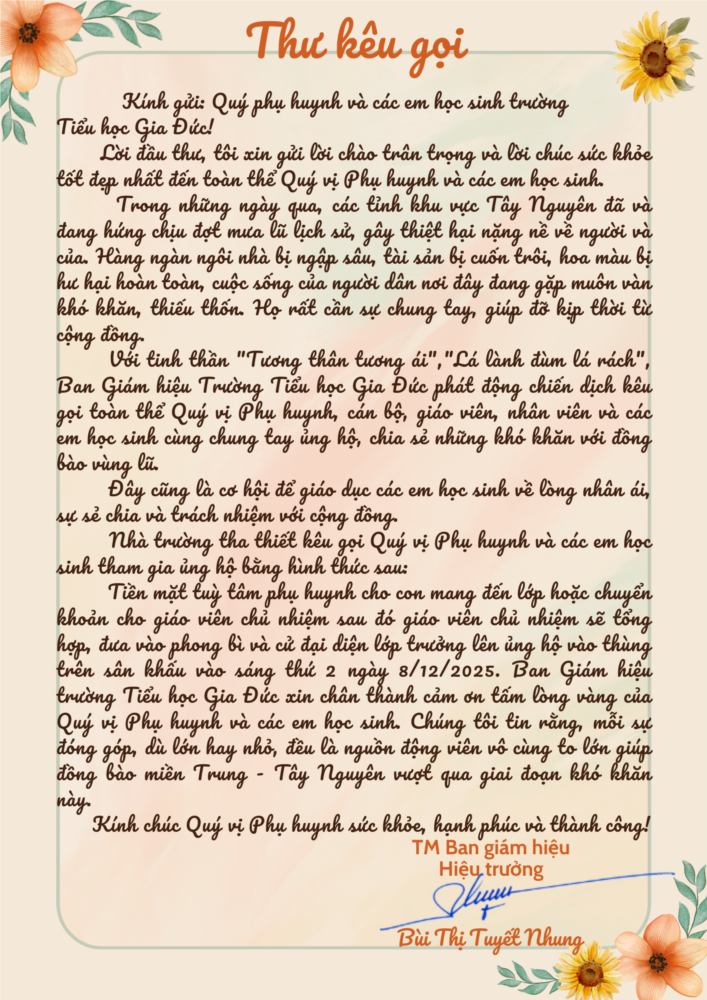 Thư kêu gọi
Kính gửi: Quý phụ huynh và các em học sinh trường
Tiểu học Gia Đức!
Lời đầu thư, tôi xin gửi lời chào trân trọng và lời chúc sức khỏe
tốt đẹp nhất đến toàn thể Quý vị Phụ huynh và các em học sinh.
Trong những ngày qua, các tỉnh khu vực Tây Nguyên đã và
đang hứng chịu đợt mưa lũ lịch sử, gây thiệt hại nặng nề về người và
của. Hàng ngàn ngôi nhà bị ngập sâu, tài sản bị cuốn trôi, hoa màu bị
hư hại hoàn toàn, cuộc sống của người dân nơi đây đang gặp muôn vàn
khó khăn, thiếu thốn. Họ rất cần sự chung tay, giúp đỡ kịp thời từ
cộng đồng.
Với tinh thần "Tương thân tương ái","Lá lành đùm lá rách",
Ban Giám hiệu Trường Tiểu học Gia Đức phát động chiến dịch kêu
gọi toàn thể Quý vị Phụ huynh, cán bộ, giáo viên, nhân viên và các
em học sinh cùng chung tay ủng hộ, chia sẻ những khó khăn với đồng
bào vùng lũ.
Đây cũng là cơ hội để giáo dục các em học sinh về lòng nhân ái,
sự sẻ chia và trách nhiệm với cộng đồng.
Nhà trường tha thiết kêu gọi Quý vị Phụ huynh và các em học
sinh tham gia ủng hộ bằng hình thức sau:
Tiền mặt tuỳ tâm phụ huynh cho con mang đến lớp hoặc chuyển
khoản cho giáo viên chủ nhiệm sau đó giáo viên chủ nhiệm sẽ tổng
hợp, đưa vào phong bì và cử đại diện lớp trưởng lên ủng hộ vào thùng
trên sân khấu vào sáng thứ 2 ngày 8/12/2025. Ban Giám hiệu
trường Tiểu học Gia Đức xin chân thành cảm ơn tấm lòng vàng của
Quý vị Phụ huynh và các em học sinh. Chúng tôi tin rằng, mỗi sự
đóng góp, dù lớn hay nhỏ, đều là nguồn động viên vô cùng to lớn giúp
đồng bào miền Trung - Tây Nguyên vượt qua giai đoạn khó khăn
này.
Kính chúc Quý vị Phụ huynh sức khỏe, hạnh phúc và thành công!
TM Ban giám hiệu
Hiệu trưởng
Bùi Thị Tuyết Nhung